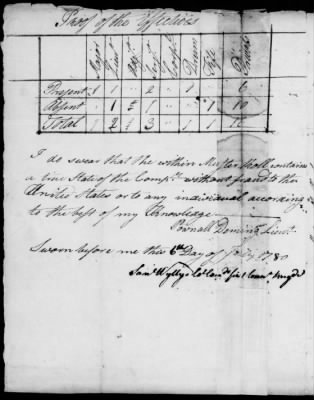 Proof of the Effectives
Major Lieut Ensn Sergt Corpl Drum Fife Privates
Present 1 1 " 2 " 1 6
Absent 1 " 1 " 1 10
Total 1 2 " 3 1 1
I do swear that the within Muster Roll contains
a true State of the Compy without fraud to the
United States or to any individual according
to the best of my Knowledge
Pownall Deming Lieut.
Sworn before me this 6th Day of July 1780
Saml Wyllys Col